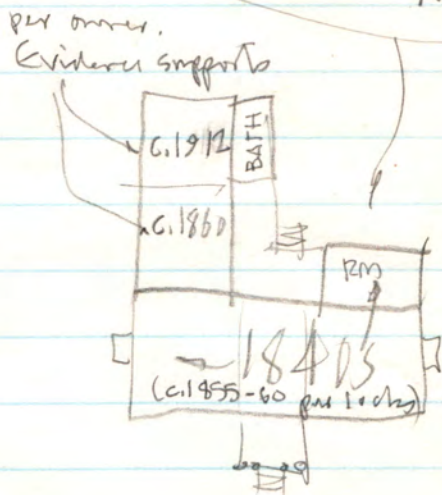 per owner.
Evidence supports
c.1912
BATH
c.1860
RM
1840s
(c.1855-60 per locks)